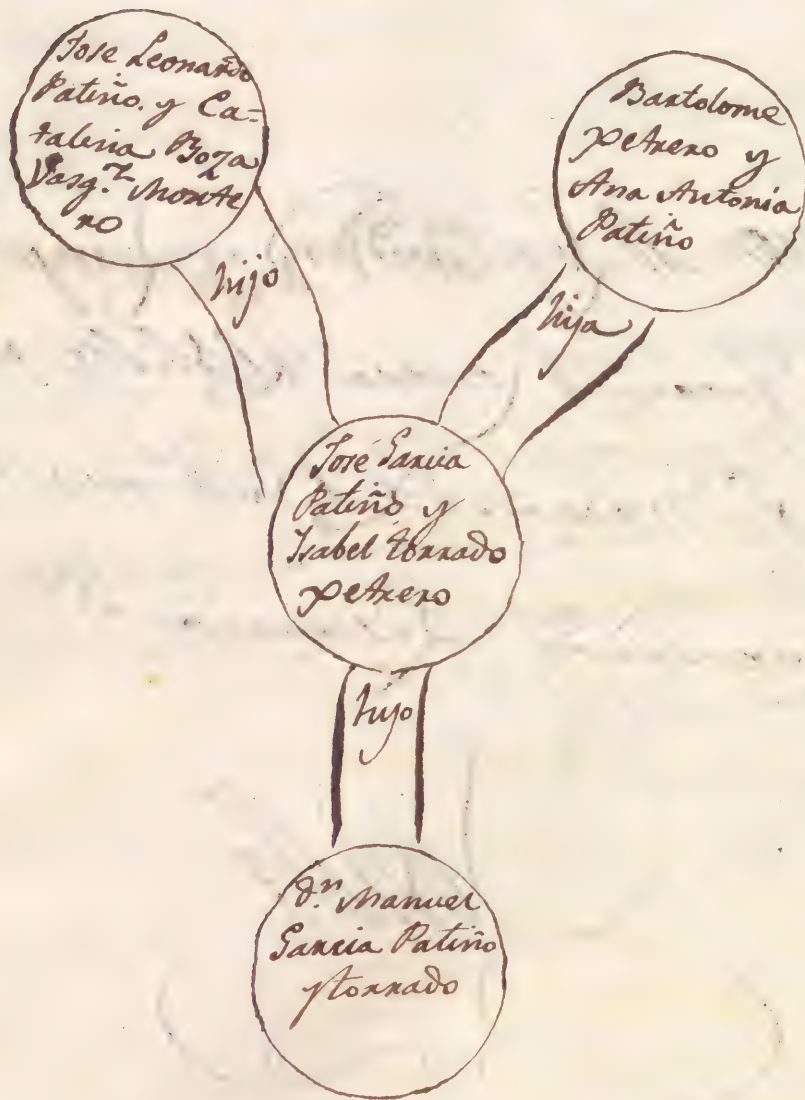 Jose Leonardo
Patiño. y Ca-
talina Boza
Vasq.z Monte
ro
hijo
Bartolome
petrero y
Ana Antonia
Patiño
hija
José Garcia
Patiño y
Isabel torrado
petrero
hijo
d.n Manuel
Garcia Patiño
ytorrado